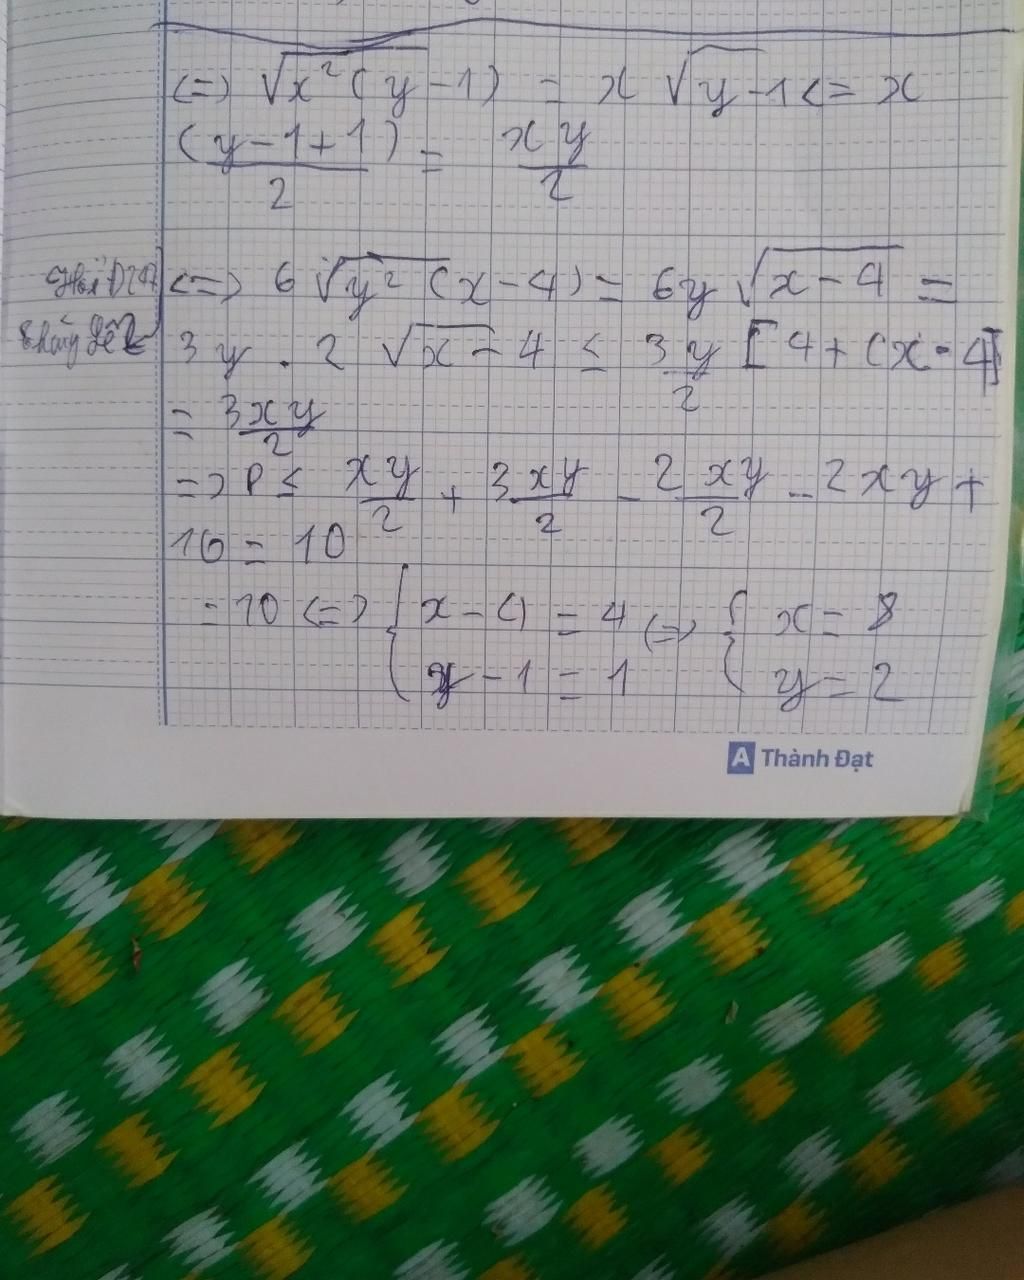 <=> √x²(y-1) = x √y-1 <= x
(y-1+1)/2 = xy/2
<=> 6 √y²(x-4) = 6y √x-4 =
3y . 2 √x-4 ≤ 3y/2 [4+(x-4]
= 3xy/2
=> P ≤ xy/2 + 3xy/2 - 2xy/2 - 2xy +
10 = 10
= 10 <=> { x-4 = 4 <=> { x = 8
y-1 = 1 y = 2
A Thành Đạt